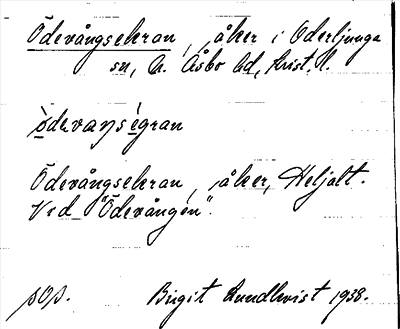 Ödevångsekran, åker i Oderljunga
sn, N. Åsbo hd, Krist. l.
ödevaŋsègran
Ödevångsekran, åker, Heljalt.
Vid "Ödevången".
pop. Birgit Rundkvist 1938.